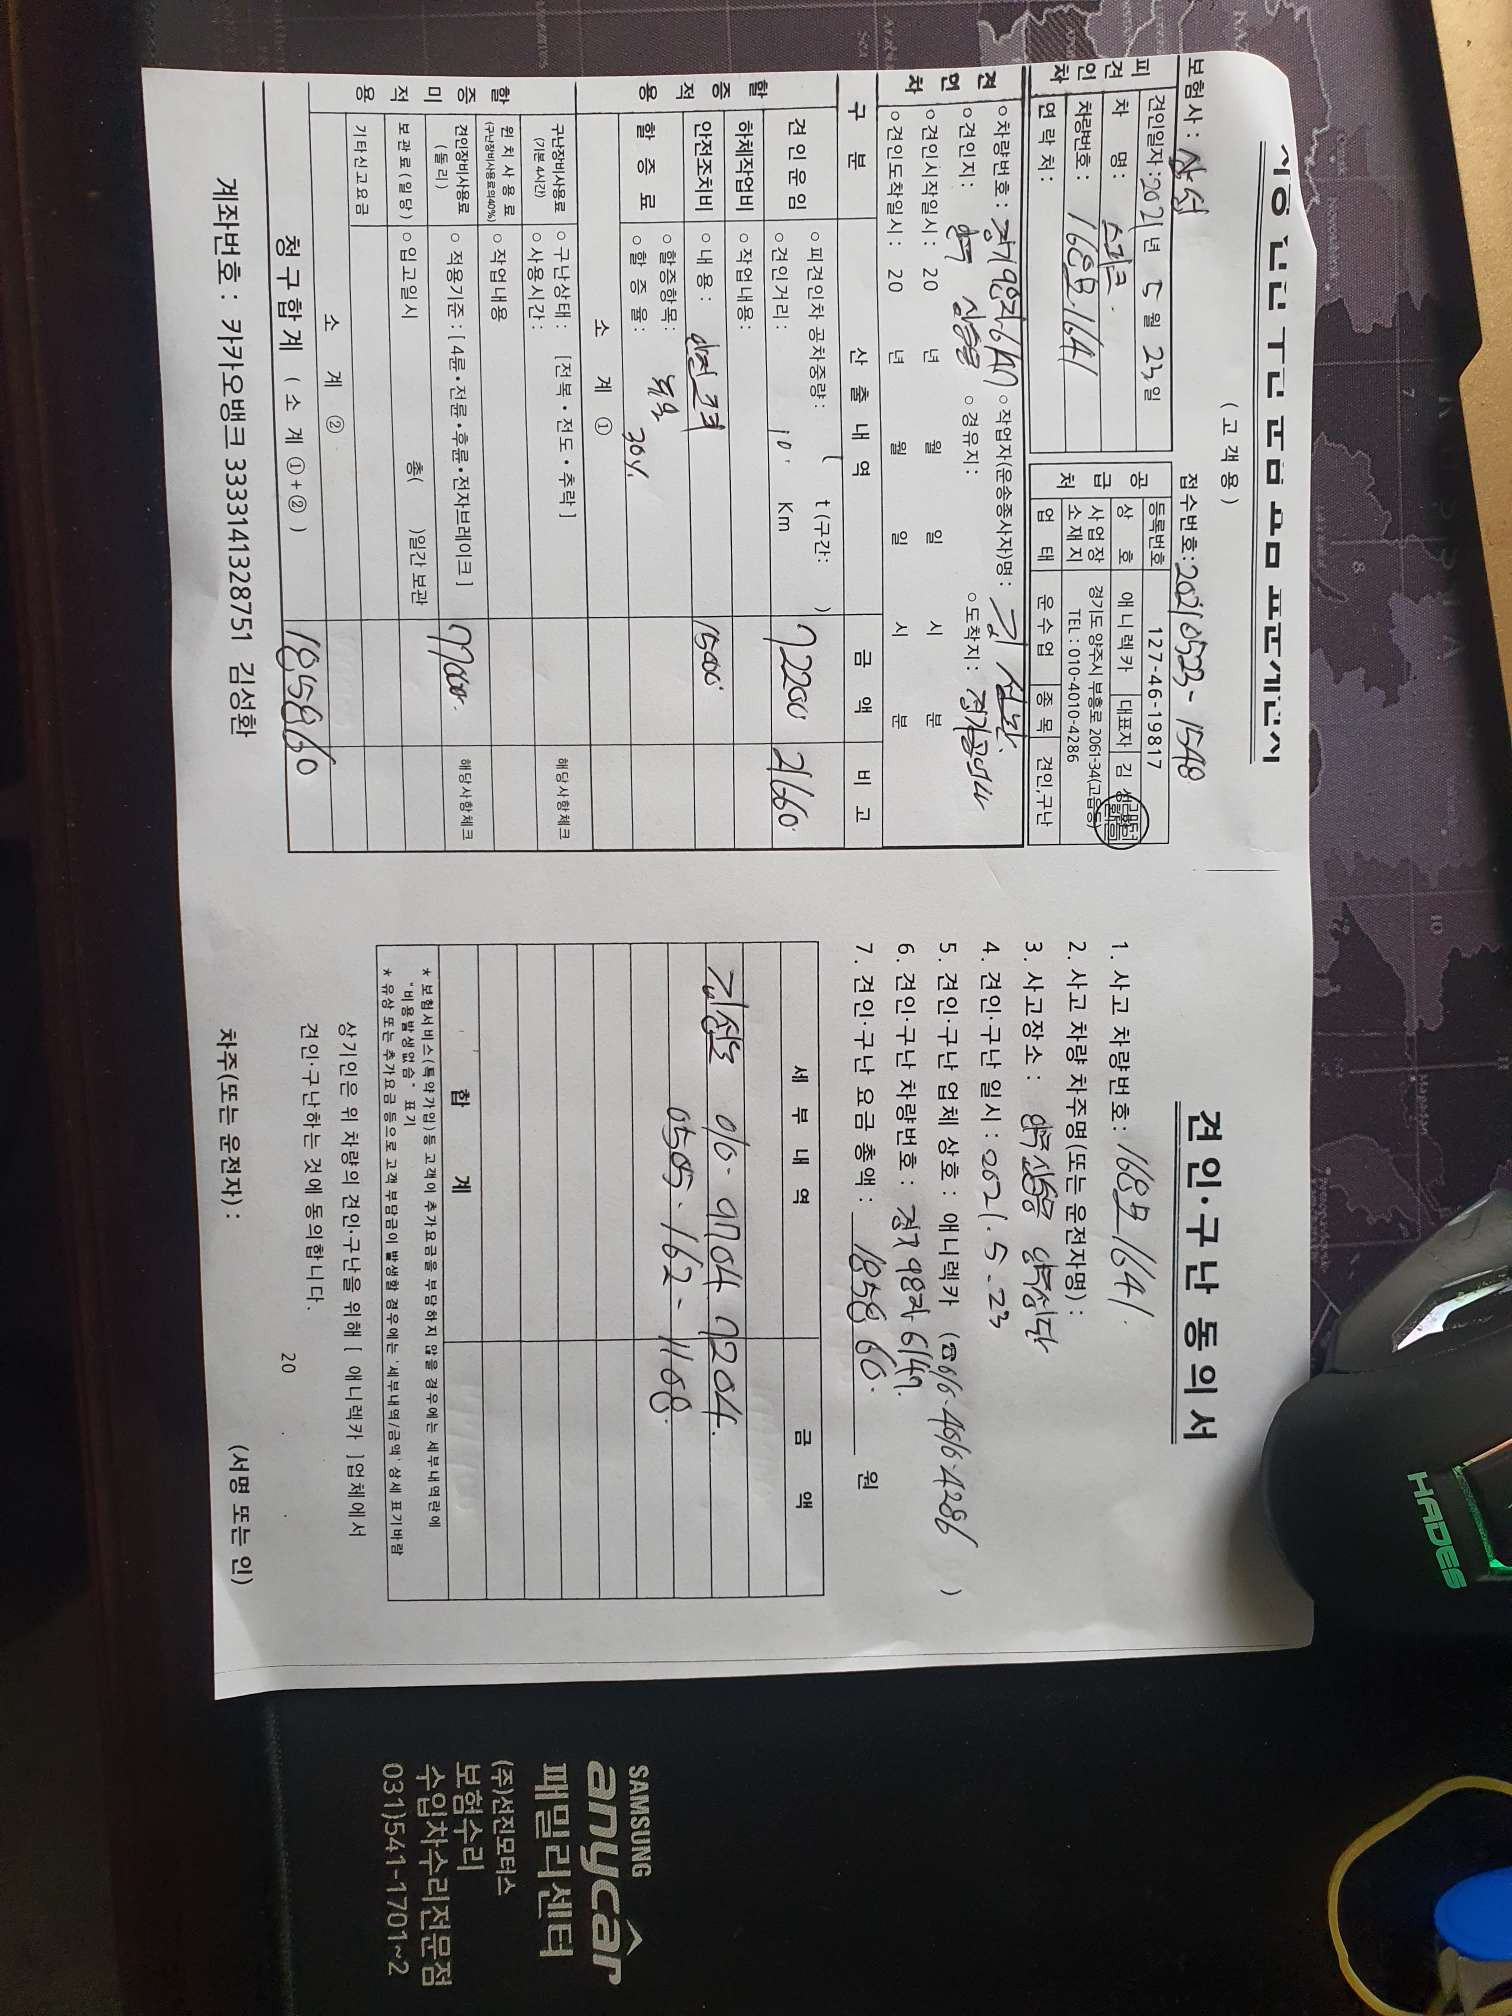 (고객용)
보험사: 삼성
접수번호: 20210523-1548
피견인차
견인일자: 2021년 5월 23일
차 명: 스파크
차량번호: 168모1641
연락처:
공급처
등록번호 127-46-19817
상호 애니렉카 대표자 김성환
사업장소재지 경기도 양주시 부흥로 2061-34(고읍동)
TEL : 010-4010-4286
업태 운수업 종목 견인,구난
견인차
○차량번호: 경기98자6147 ○작업자(운송종사자)명:
○견인지: 양주 삼숭동 ○경유지: ○도착지:
○견인시작일시: 20 년 월 일 시 분
○견인도착일시: 20 년 월 일 시 분
구 분 산 출 내 역 금 액 비 고
할증적용
견인운임
○피견인차 공차중량: t (구간: )
○견인거리: 10 Km 72200 21660
하체작업비 ○작업내용:
안전조치비 ○내용: 안전조치 15000
할증료
○할증항목: 휴일
○할증율: 30%
소 계 ①
할증미적용
구난장비사용료 (기본 4시간)
○구난상태: [전복·전도·추락] 해당사항체크
○사용시간:
윈치사용료 (구난장비사용료의40%) ○작업내용
견인장비사용료 (돌리) ○적용기준: [4륜·전륜·후륜·전자브레이크] 77000 해당사항체크
보관료(일당) ○입고일시 총( )일간 보관
기타신고요금
소 계 ②
청구합계 (소계①+②) 185860
계좌번호 : 카카오뱅크 3333141328751 김성환
견인·구난 동의서
1. 사고 차량번호: 168모1641
2. 사고 차량 차주명(또는 운전자명) :
3. 사고장소 : 양주 삼숭동
4. 견인·구난 일시 : 2021. 5. 23
5. 견인·구난 업체 상호 : 애니렉카 (☎ )
6. 견인·구난 차량번호 : 경기98자6147
7. 견인·구난 요금 총액 : 185860 원
세 부 내 역 금 액
010-9704 7204
0505-162-1168
합 계
* 보험서비스(특약가입)등 고객이 추가요금을 부담하지 않을 경우에는 세부내역란에
"비용발생없음" 표기
* 유상 또는 추가요금 등으로 고객 부담금이 발생할 경우에는 '세부내역/금액' 상세 표기바람
상기인은 위 차량의 견인·구난을 위해 [ 애니렉카 ]업체에서
견인·구난하는 것에 동의합니다.
20
차주(또는 운전자) : (서명 또는 인)
HADES
SAMSUNG
anycar
패밀리센터
(주)선진모터스
보험수리
수입차수리전문점
031)541-1701~2